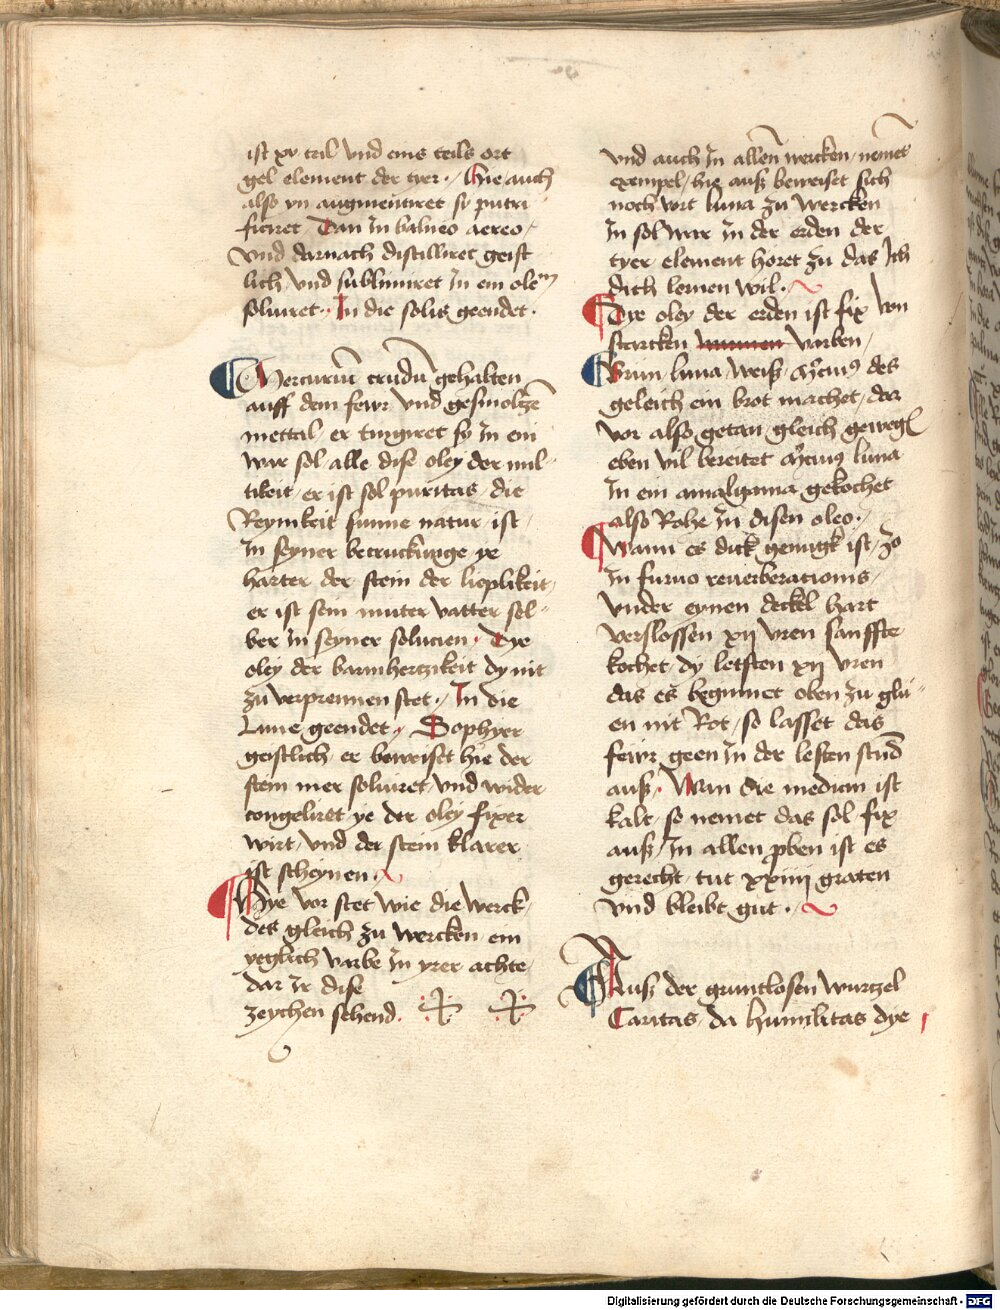 ist xv teil vnd eins teils ort
gel element der tyer · Hie auch
also vn augmentiret sy putri
ficiret · Dan in balneo aereo
vnd darnach distilliret geist
lich vnd sublimiret in ein oleum
soluiret · In die solis geendet ·
Mercuriū crudū gehalten
auff dem fewr vnd gesmoltzē
mettal er tingiret sy in ein
war sol alle dise oley der mil
tikeit er ist sol puritas die
Reynikeit sunne natur ist
in seyner betruckunge ye
harter der stein der lieplikeit
er ist sein muter vatter sel
ber in seyner solucien · Dye
oley der barmhertzikeit dy nit
zu verprennen stet · In die
Lune geendet · Sophyer
geistlich er beweiset hie der
stein mer soluiret vnd wider
congeliret ye der oley fixer
wirt vnd der stein klarer
ist scheynen ·
Wye vor stet wie die werck
des gleich zu wercken ein
yeglich varbe in yrer achte
dar ir dise
zeychen sehend
vnd auch in allen wercken nemet
exempel hie auß beweiset sich
noch vort luna zu wercken
in sol war in der erden der
tyer element horet zu das ich
dich lernen wil ·
Dye oley der erden ist fix von
starcken varben
Grun luna weiß des
geleich ein brot machet dar
vor also getan gleich
eben vil bereitet luna
in ein amalgama gekochet
also Rohe in disen oleo ·
Wann es dick genugk ist zo
in furno reuerberationis
vnder eynen deckel hart
verslossen xij vren sanffte
kochet dy letsten xij vren
das es beginnet oben zu glu
en nit Rot so lasset das
fewr geen in der lesten stūd
auß · Wan die medicin ist
kalt so nemet das sol fix
auß in allen proben ist es
gerecht tut xxiiij graten
vnd bleibt gut ·
Auß der gruntlosen wurtzel
Caritas da humilitas dye
Digitalisierung gefördert durch die Deutsche Forschungsgemeinschaft - DFG